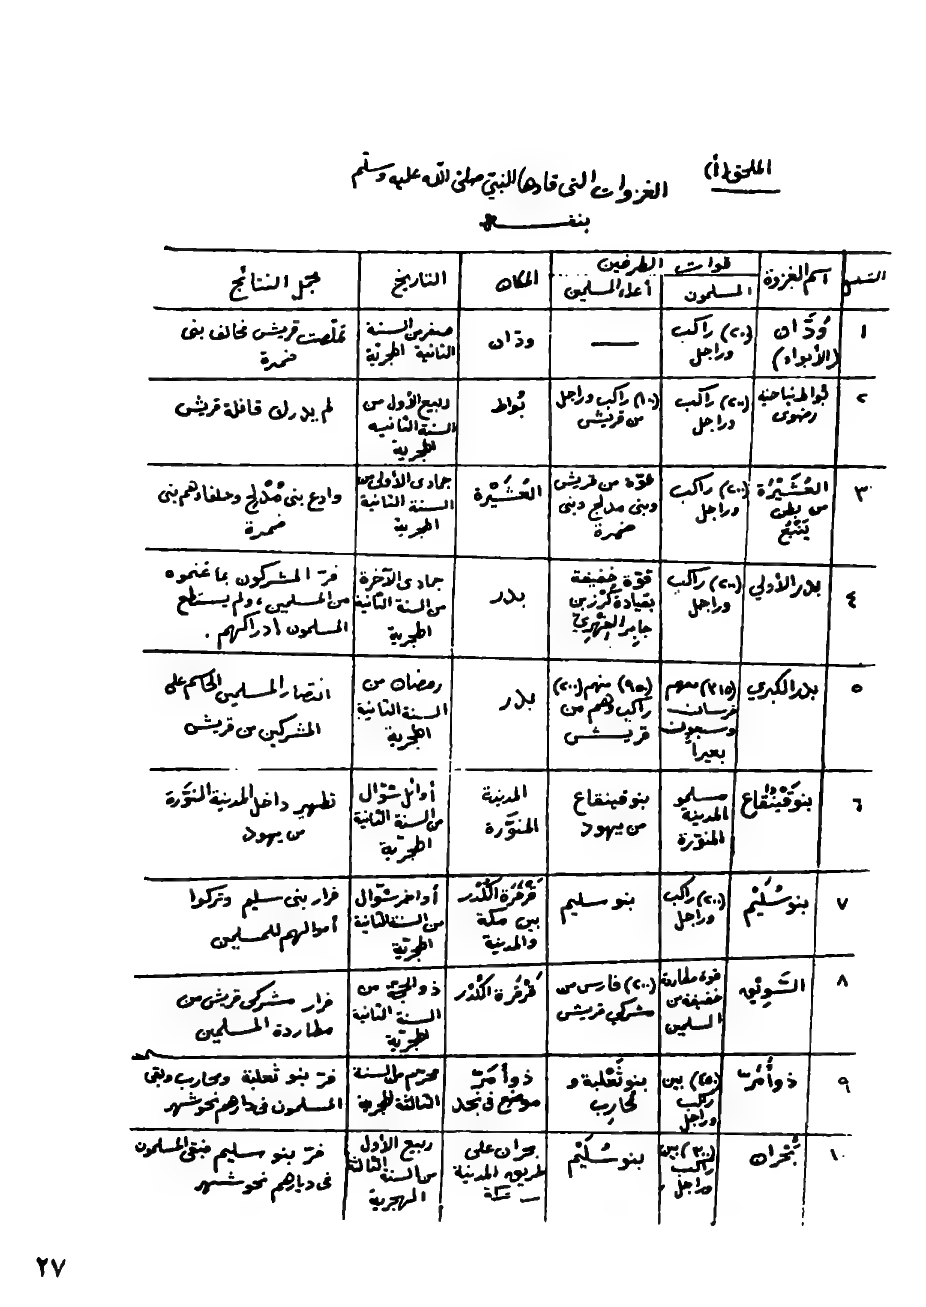 الملحق (أ)
الغزوات التي قادها النبي صلى الله عليه وسلم
بنفسه
التسلسل | اسم الغزوة | قوات الطرفين: المسلمون | أعداء المسلمين | المكان | التاريخ | مجمل النتائج
١ | وُدَّان (الأبواء) | (٢٠٠) راكب وراجل | — | ودّان | صفر من السنة الثانية الهجريّة | تملّصت قريش فحالف بنى ضمرة
٢ | بُواط نباحية رضوى | (٢٠٠) راكب وراجل | (١٠٠) راكب وراجل من قريش | بُواط | ربيع الأول من السنة الثانيه الهجرية | لم يدرك قافلة قريش
٣ | العُشَيْرَة من بطن يَنْبُع | (٢٠٠) راكب وراجل | قوّة من قريش وبنى مدلج وبنى ضمرة | العُشَيْرة | جمادى الأولى من السنة الثانية الهجرية | وادع بنى مُدْلج وحلفاءهم بنى ضمرة
٤ | بدر الأولي | (٢٠٠) راكب وراجل | قوّة خفيفة بقيادة كُرْز بن جابر الفهريّ | بدر | جمادى الآخرة من السنة الثانية الهجرية | فرّ المشركون بما غنموه من المسلمين، ولم يستطع المسلمون إدراكهم .
٥ | بدر الكبرى | (٣١٥) منهم فرسان وسبعون بعيراً | (٩٥٠) منهم (٢٠٠) راكب وهم من قريش | بدر | رمضان من السنة الثانية الهجرية | انتصار المسلمين الحاسم على المشركين من قريش
٦ | بنو قَيْنُقاع | مسلمو المدينة المنوّرة | بنو قينقاع من يهود | المدينة المنوّرة | أوائل شوّال من السنة الثانية الهجريّة | تطهير داخل المدينة المنوَّرة من يهود
٧ | بنو سُلَيْم | (٢٠٠) راكب وراجل | بنو سليم | قَرْقَرَة الكُدْر بين مكة والمدينة | أواخر شوّال من السنة الثانية الهجريّة | فرار بنى سليم وتركوا أموالهم للمسلمين
٨ | السَّوِيْق | قوة مطاردة خفيفة من المسلمين | (٢٠٠) فارس من مشركي قريش | قَرْقَرة الكُدْر | ذو الحجّة من السنة الثانية الهجريّة | فرار مشركى قريش من مطاردة المسلمين
٩ | ذو أَمَرّ | (٤٥٠) بين راكب وراجل | بنو ثَعْلبة و محارب | ذو أمَرّ موضع فى نجد | محرّم من السنة الثالثة الهجرية | فرّ بنو ثعلبة ومحارب وبقى المسلمون فى دارهم نحو شهر
١٠ | بُحْران | (٣٠٠) بين راكب وراجل | بنو سُلَيْم | بحران على طريق المدينة ــ مكة | ربيع الأول من السنة الثالثة الهجرية | فرّ بنو سليم فبقى المسلمون فى ديارهم نحو شهر
٢٧